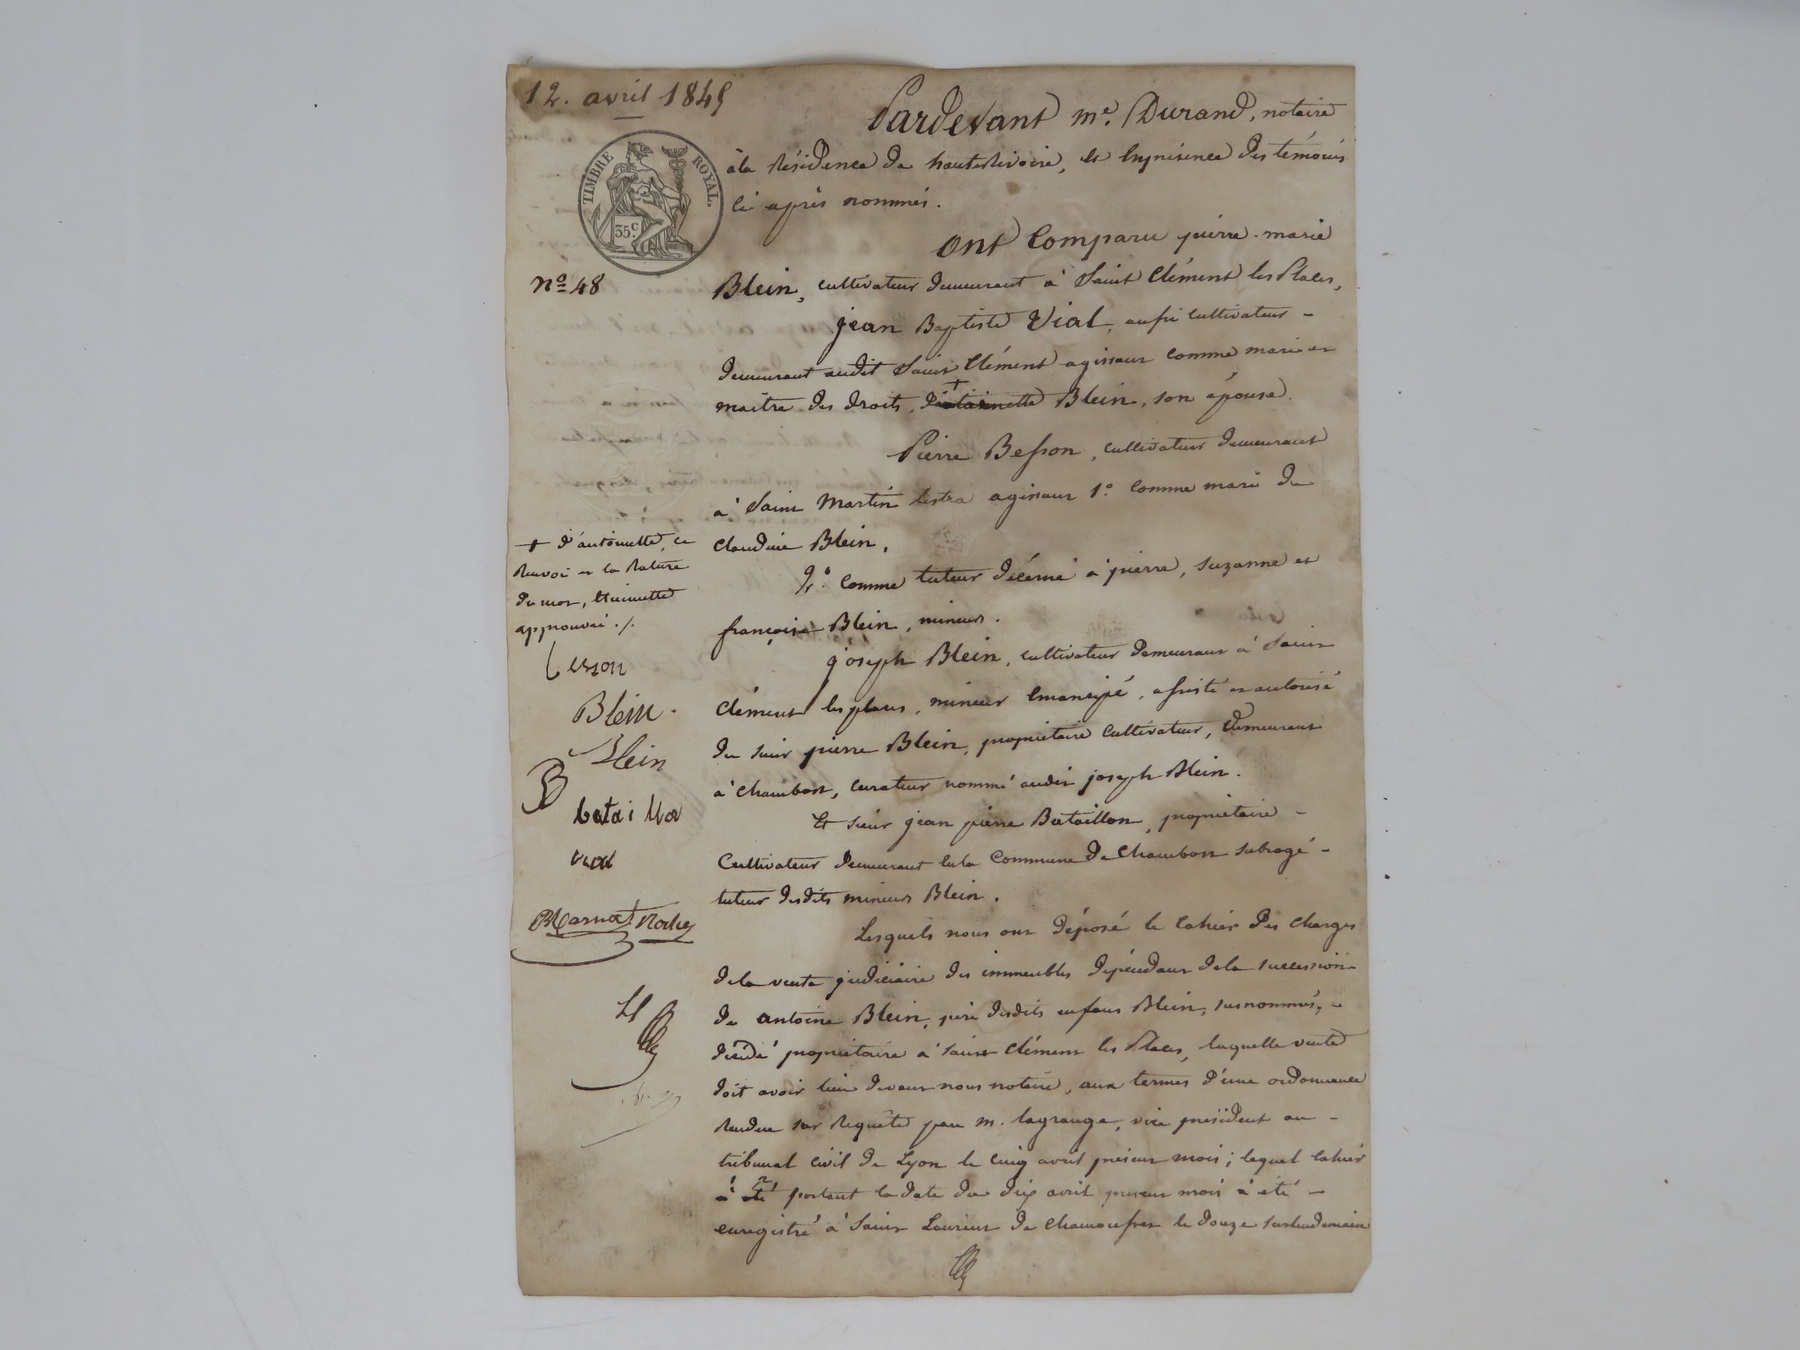 12. avril 1845
Pardevant me. Durand, notaire
TIMBRE ROYAL.
35c.
à la Résidence de hauterivoire, et en présence des témoins
ci après nommés.
ont Comparu pierre-marie
no 48
Blein, cultivateur demeurant à Saint Clément les Places,
jean Baptiste Vial, aussi cultivateur -
demeurant audit Saint Clément agissant comme mari et
maître des droits, Blein, son épouse.
Pierre Besson, cultivateur demeurant
à Saint Martin lestra agissant 1o. comme mari de
claudine Blein.
2o. comme tuteur décerné à pierre, suzanne et
françoise Blein, mineurs.
joseph Blein, cultivateur demeurant à Saint
Clément les places, mineur émancipé, assisté et autorisé
du sieur pierre Blein, propriétaire cultivateur, demeurant
à chambost, curateur nommé audit joseph Blein.
Et sieur jean pierre Bataillon, propriétaire -
Cultivateur demeurant en la Commune de Chambost subrogé -
tuteur desdits mineurs Blein.
Lesquels nous ont déposé le Cahier des charges
de la vente judiciaire des immeubles dépendant de la succession
de antoine Blein, père desdits enfans Blein, susnommés, -
décédé propriétaire à Saint Clément les Places, laquelle vente
doit avoir lieu devant nous notaire, aux termes d'une ordonnance
Rendue sur Requête par m. lagrange, vice président au -
tribunal civil de Lyon le cinq avril présent mois; lequel Cahier
à été portant la date du dix avril présent mois à été -
enregistré à Saint Laurent de Chamousset le douze surlendemain
+ d'antoinette, ce
Renvoi et la Rature
du mot,
approuvés ./.
besson
Blein.
Blein
B
batai llon
vial